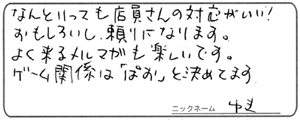 なんといっても店員さんの対応がいい!
おもしろいし、頼りになります。
よく来るメルマガも楽しいです。
ゲーム関係は「ぱお」と決めてます
ニックネーム